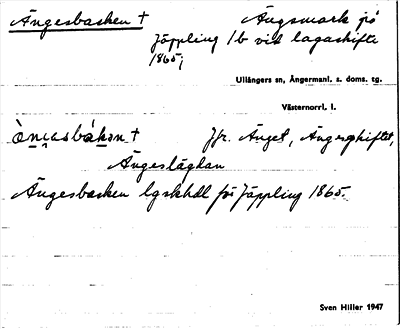 Ängesbacken † Ängsmark på
Jäppling 1b vid lagaskifte
1865;
Ullångers sn, Ångermanl. s. doms. tg.
Västernorrl. l.
Jfr. Änget, Ängesskiftet,
Ängeslägdan
Ängesbacken lgskhdl för Jäppling 1865.
Sven Hiller 1947